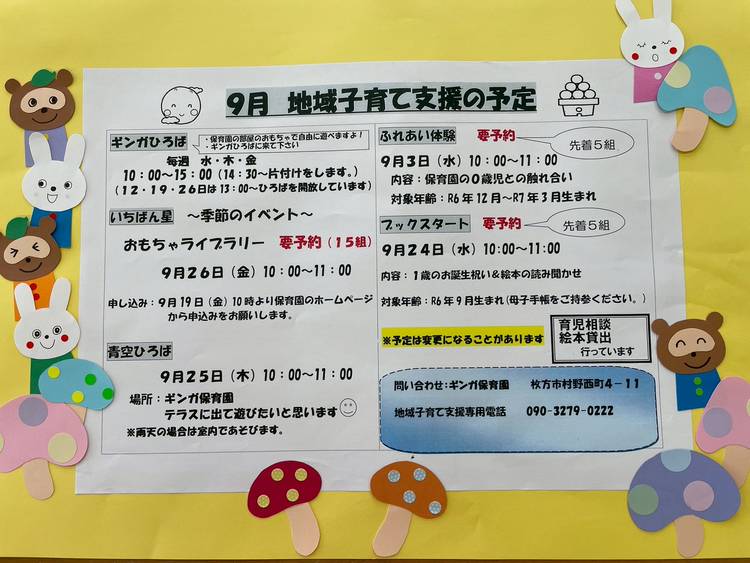 9月 地域子育て支援の予定
ギンガひろば
・保育園の部屋のおもちゃで自由に遊べますよ！
・ギンガひろばに来て下さい
毎週 水・木・金
10:00～15:00（14:30～片付けをします。）
（12・19・26日は13:00～ひろばを開放しています）
いちばん星 ～季節のイベント～
おもちゃライブラリー 要予約（15組）
9月26日（金）10:00～11:00
申し込み：9月19日（金）10時より保育園のホームページ
から申込みをお願いします。
青空ひろば
9月25日（木）10:00～11:00
場所：ギンガ保育園
テラスに出て遊びたいと思います
※雨天の場合は室内であそびます。
ふれあい体験 要予約 先着5組
9月3日（水）10:00～11:00
内容：保育園の0歳児との触れ合い
対象年齢：R6年12月～R7年3月生まれ
ブックスタート 要予約 先着5組
9月24日（水）10:00～11:00
内容：1歳のお誕生祝い＆絵本の読み聞かせ
対象年齢：R6年9月生まれ（母子手帳をご持参ください。）
※予定は変更になることがあります
育児相談
絵本貸出
行っています
問い合わせ：ギンガ保育園 枚方市村野西町4－11
地域子育て支援専用電話 090-3279-0222